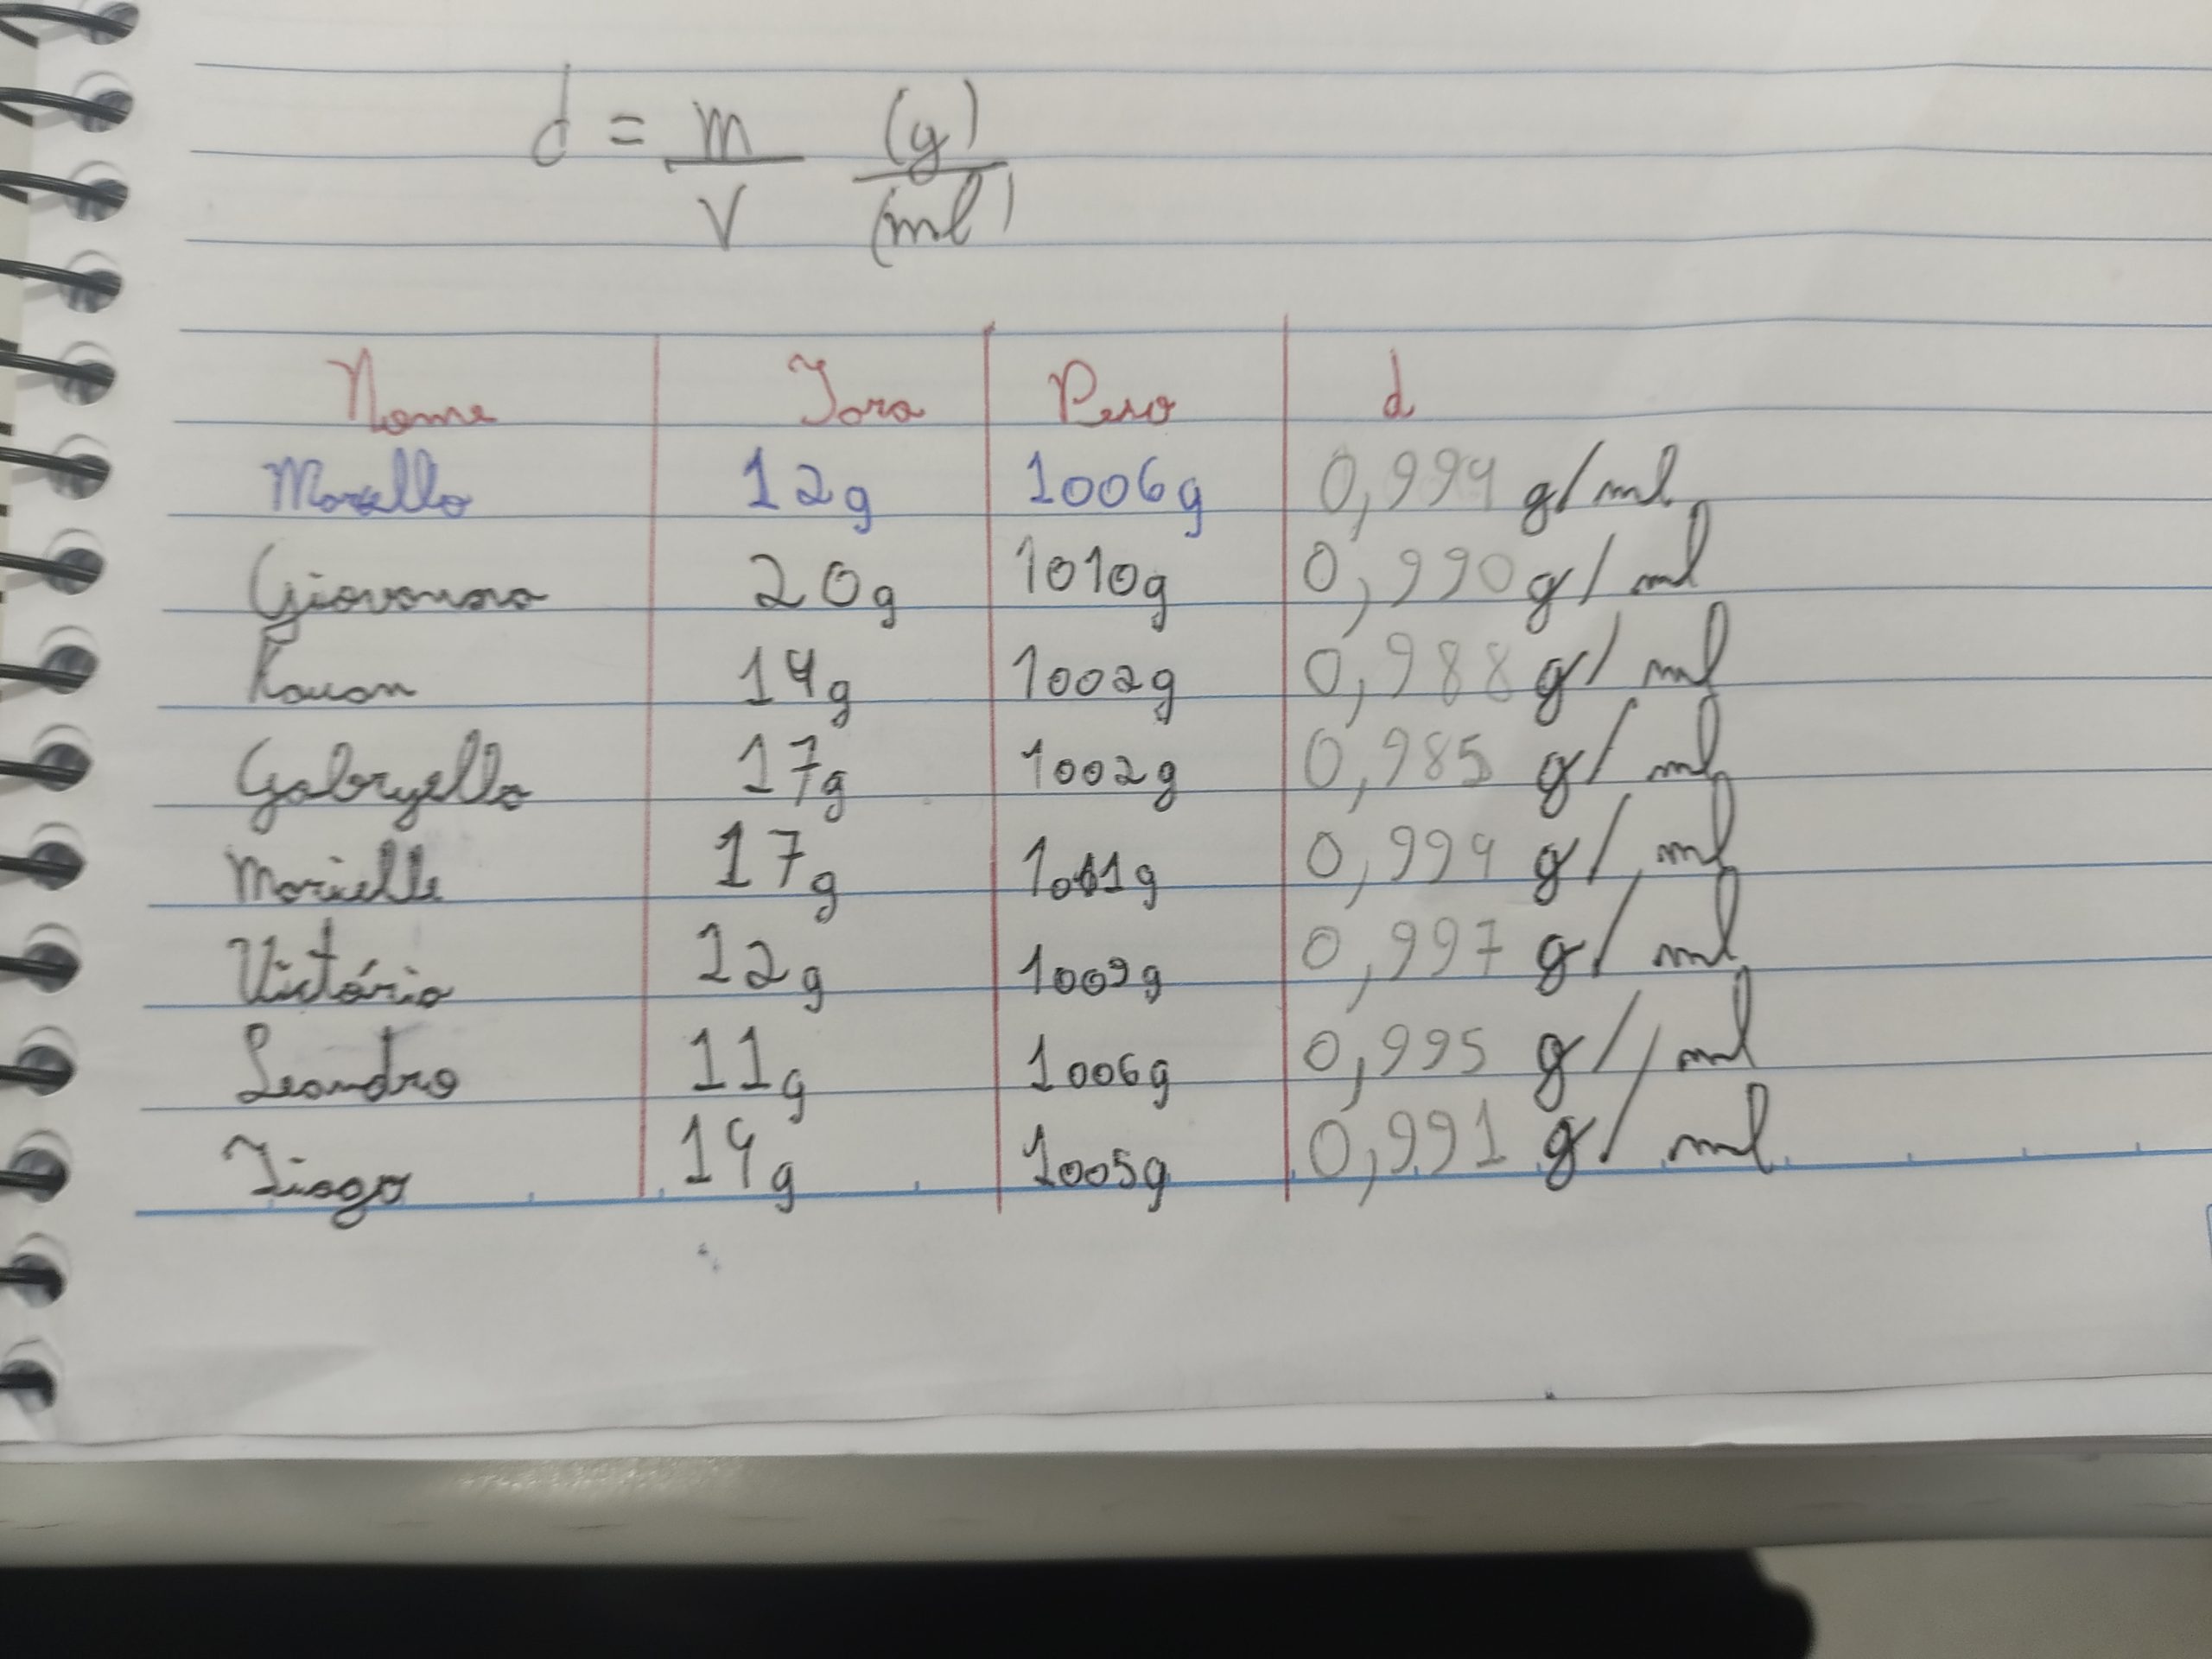 d = m/V (g)/(ml)
Nome Tara Peso d
Marcella 12g 1006g 0,994 g/ml
Giovanna 20g 1010g 0,990 g/ml
Kauan 14g 1002g 0,988 g/ml
Gabryella 17g 1002g 0,985 g/ml
Marielle 17g 1011g 0,994 g/ml
Victória 12g 1009g 0,997 g/ml
Leandro 11g 1006g 0,995 g/ml
Tiago 14g 1005g 0,991 g/ml